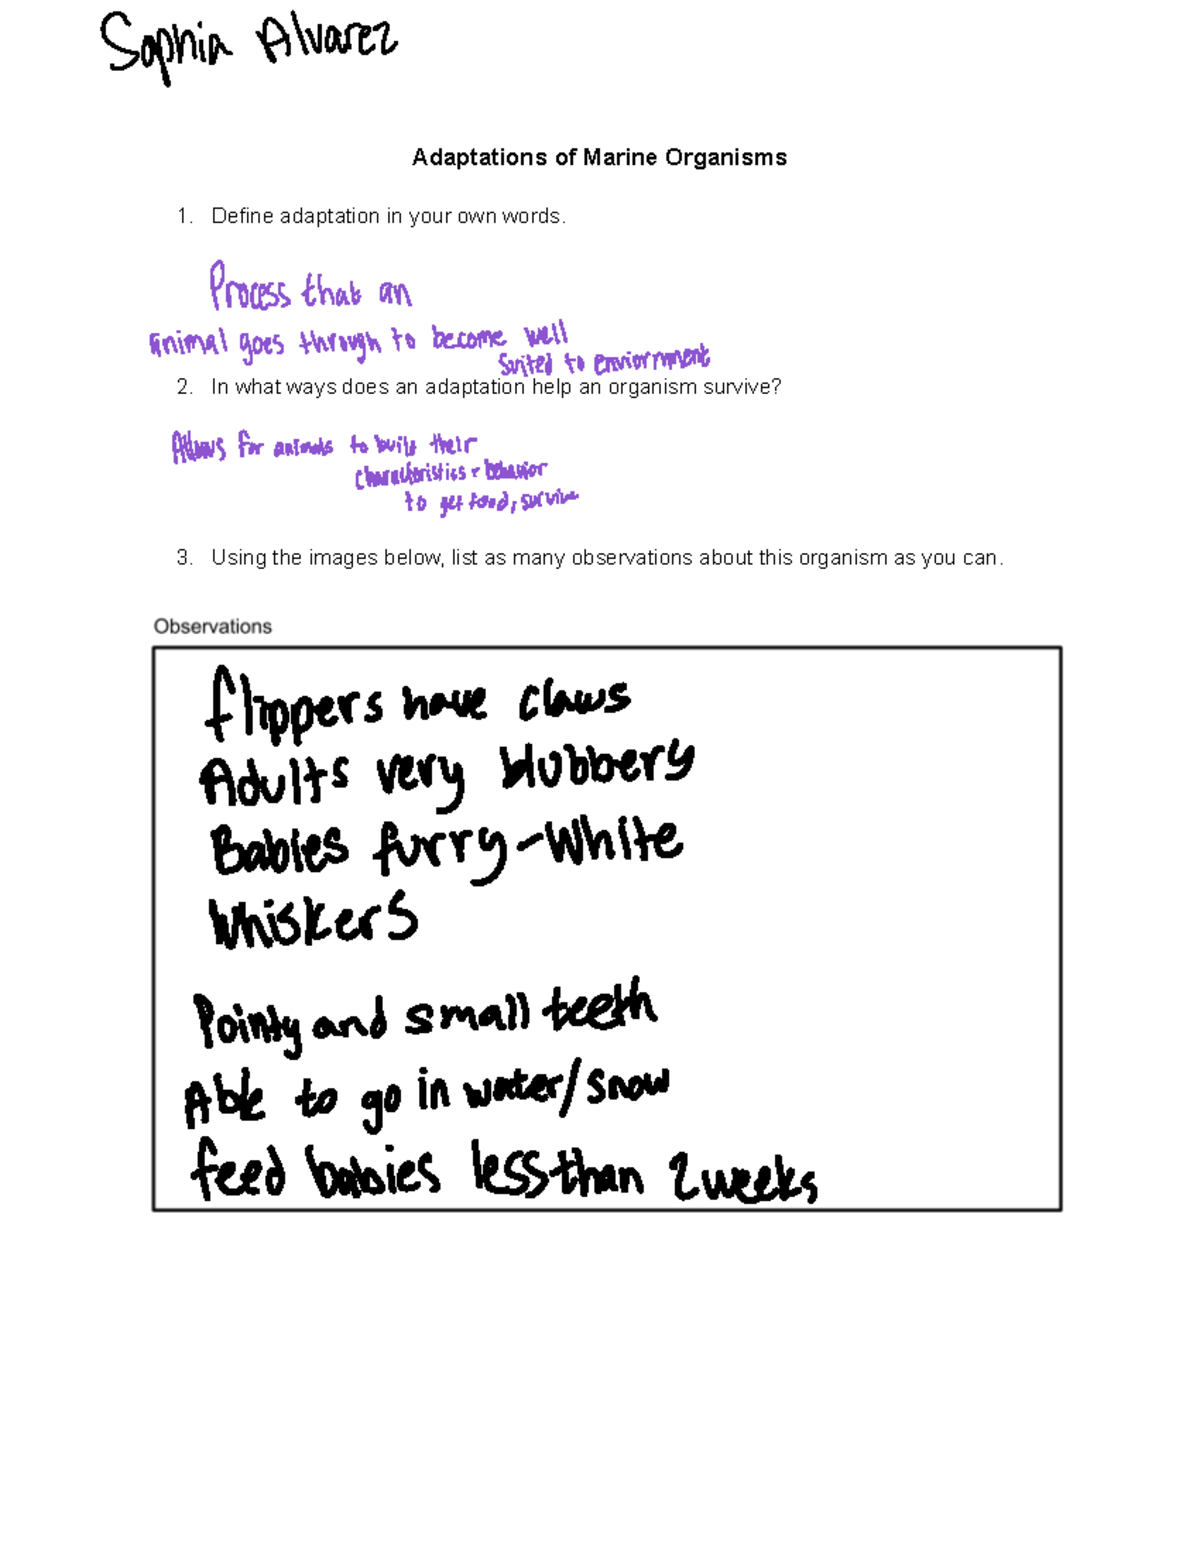 Sophia Alvarez
Adaptations of Marine Organisms
1. Define adaptation in your own words.
Process that an
animal goes through to become well
suited to enviornment
2. In what ways does an adaptation help an organism survive?
Allows for animals to build their
characteristics + behavior
to get food, survive
3. Using the images below, list as many observations about this organism as you can.
Observations
flippers have claws
Adults very blubbery
Babies furry-White
Whiskers
Pointy and small teeth
Able to go in water/snow
feed babies less than 2 weeks